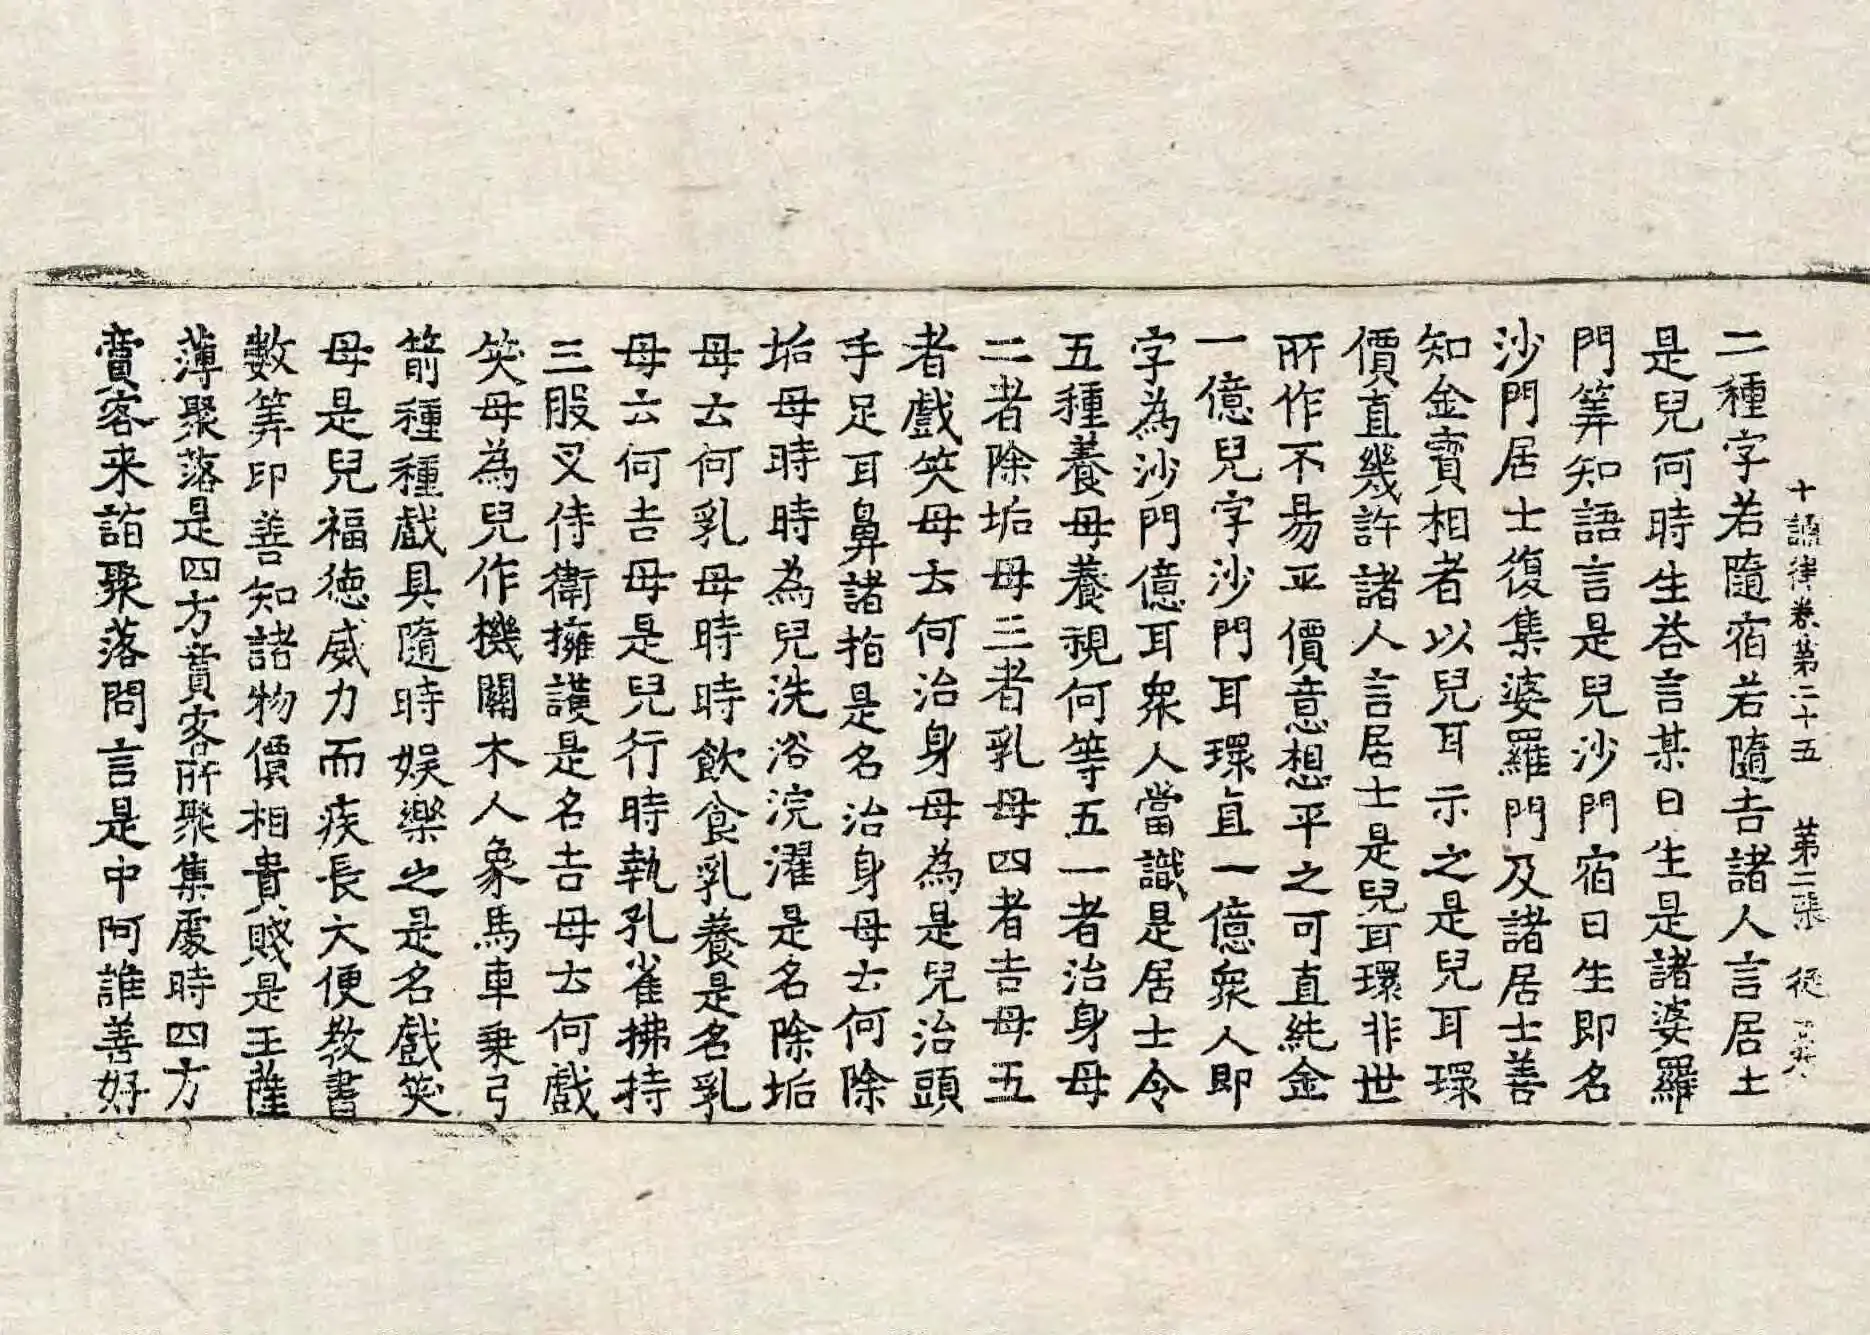 十誦律卷第二十五 第二張
二種字若隨宿若隨吉諸人言居士
是兒何時生荅言某日生是諸婆羅
門筭知語言是兒沙門宿日生即名
沙門居士復集婆羅門及諸居士善
知金寶相者以兒耳示之是兒耳環
價直幾許諸人言居士是兒耳環非世
所作不易平價意想平之可直純金
一億兒字沙門耳環直一億衆人即
字為沙門億耳衆人當識是居士令
五種養母養視何等五一者治身母
二者除垢母三者乳母四者吉母五
者戲笑母云何治身母為是兒治頭
手足耳鼻諸指是名治身母云何除
垢母時時為兒洗浴浣濯是名除垢
母云何乳母時時飲食乳養是名乳
母云何吉母是兒行時執孔雀拂持
三股叉侍衛擁護是名吉母云何戲
笑母為兒作機關木人象馬車乘弓
箭種種戲具隨時娛樂之是名戲笑
母是兒福德威力而疾長大便教書
數筭印善知諸物價相貴賤是王薩
薄聚落是四方賣客所聚集處時四方
賣客来詣聚落問言是中阿誰善好